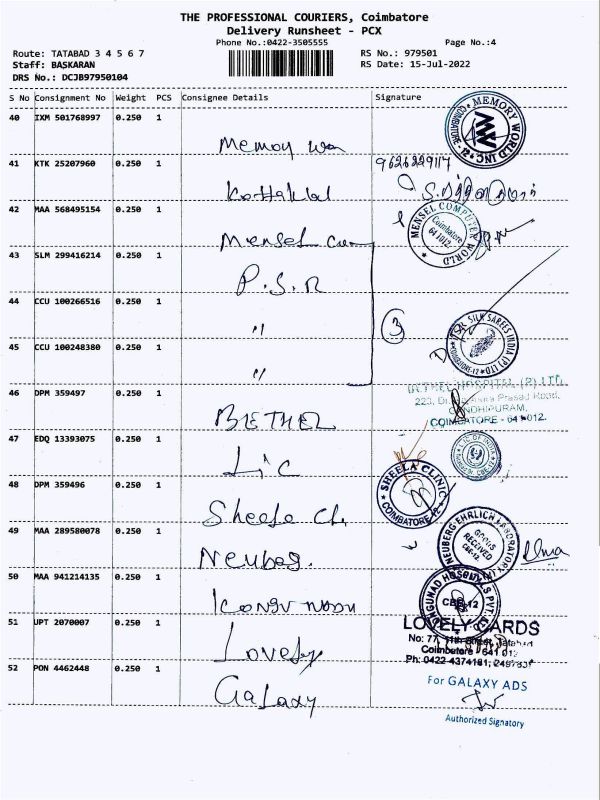 THE PROFESSIONAL COURIERS, Coimbatore
Delivery Runsheet - PCX
Phone No.:0422-3505555 Page No.:4
Route: TATABAD 3 4 5 6 7 RS No.: 979501
Staff: BASKARAN RS Date: 15-Jul-2022
DRS No.: DCJB97950104
S No Consignment No Weight PCS Consignee Details Signature
40 IXM 501768997 0.250 1
MEMORY WORLD INC
COIMBATORE - 12
Memory
41 KTK 25207960 0.250 1 9626229117
Kottakkal
42 MAA 568495154 0.250 1
MENSEL COMPUTER WORLD
Coimbatore
641012
Mensel Com
43 SLM 299416214 0.250 1
P.S.R
44 CCU 100266516 0.250 1
"
3
PSR SILK SAREES INDIA (P) LTD
COIMBATORE-12
45 CCU 100248380 0.250 1
"
46 DPM 359497 0.250 1
BETHEL HOSPITAL (P) LTD
GANDHIPURAM,
COIMBATORE - 641 012.
BETHEL
47 EDQ 13393075 0.250 1
L.I.C OF INDIA
Lic
48 DPM 359496 0.250 1
SHEELA CLINIC
COIMBATORE-12
Sheela Cl.
49 MAA 289580078 0.250 1
NEUBERG EHRLICH LABORATORY
GOODS
RECEIVED
CBE-12
Neuberg.
50 MAA 941214135 0.250 1
KONGUNAD HOSPITALS PVT. LTD
CBE-12
Kongunadu
51 UPT 2070007 0.250 1
LOVELY CARDS
No: 77, 11th Street, Tatabad
Coimbatore - 641 012
Ph: 0422 4374181,
Lovely
52 PON 4462448 0.250 1
For GALAXY ADS
Galaxy
Authorized Signatory